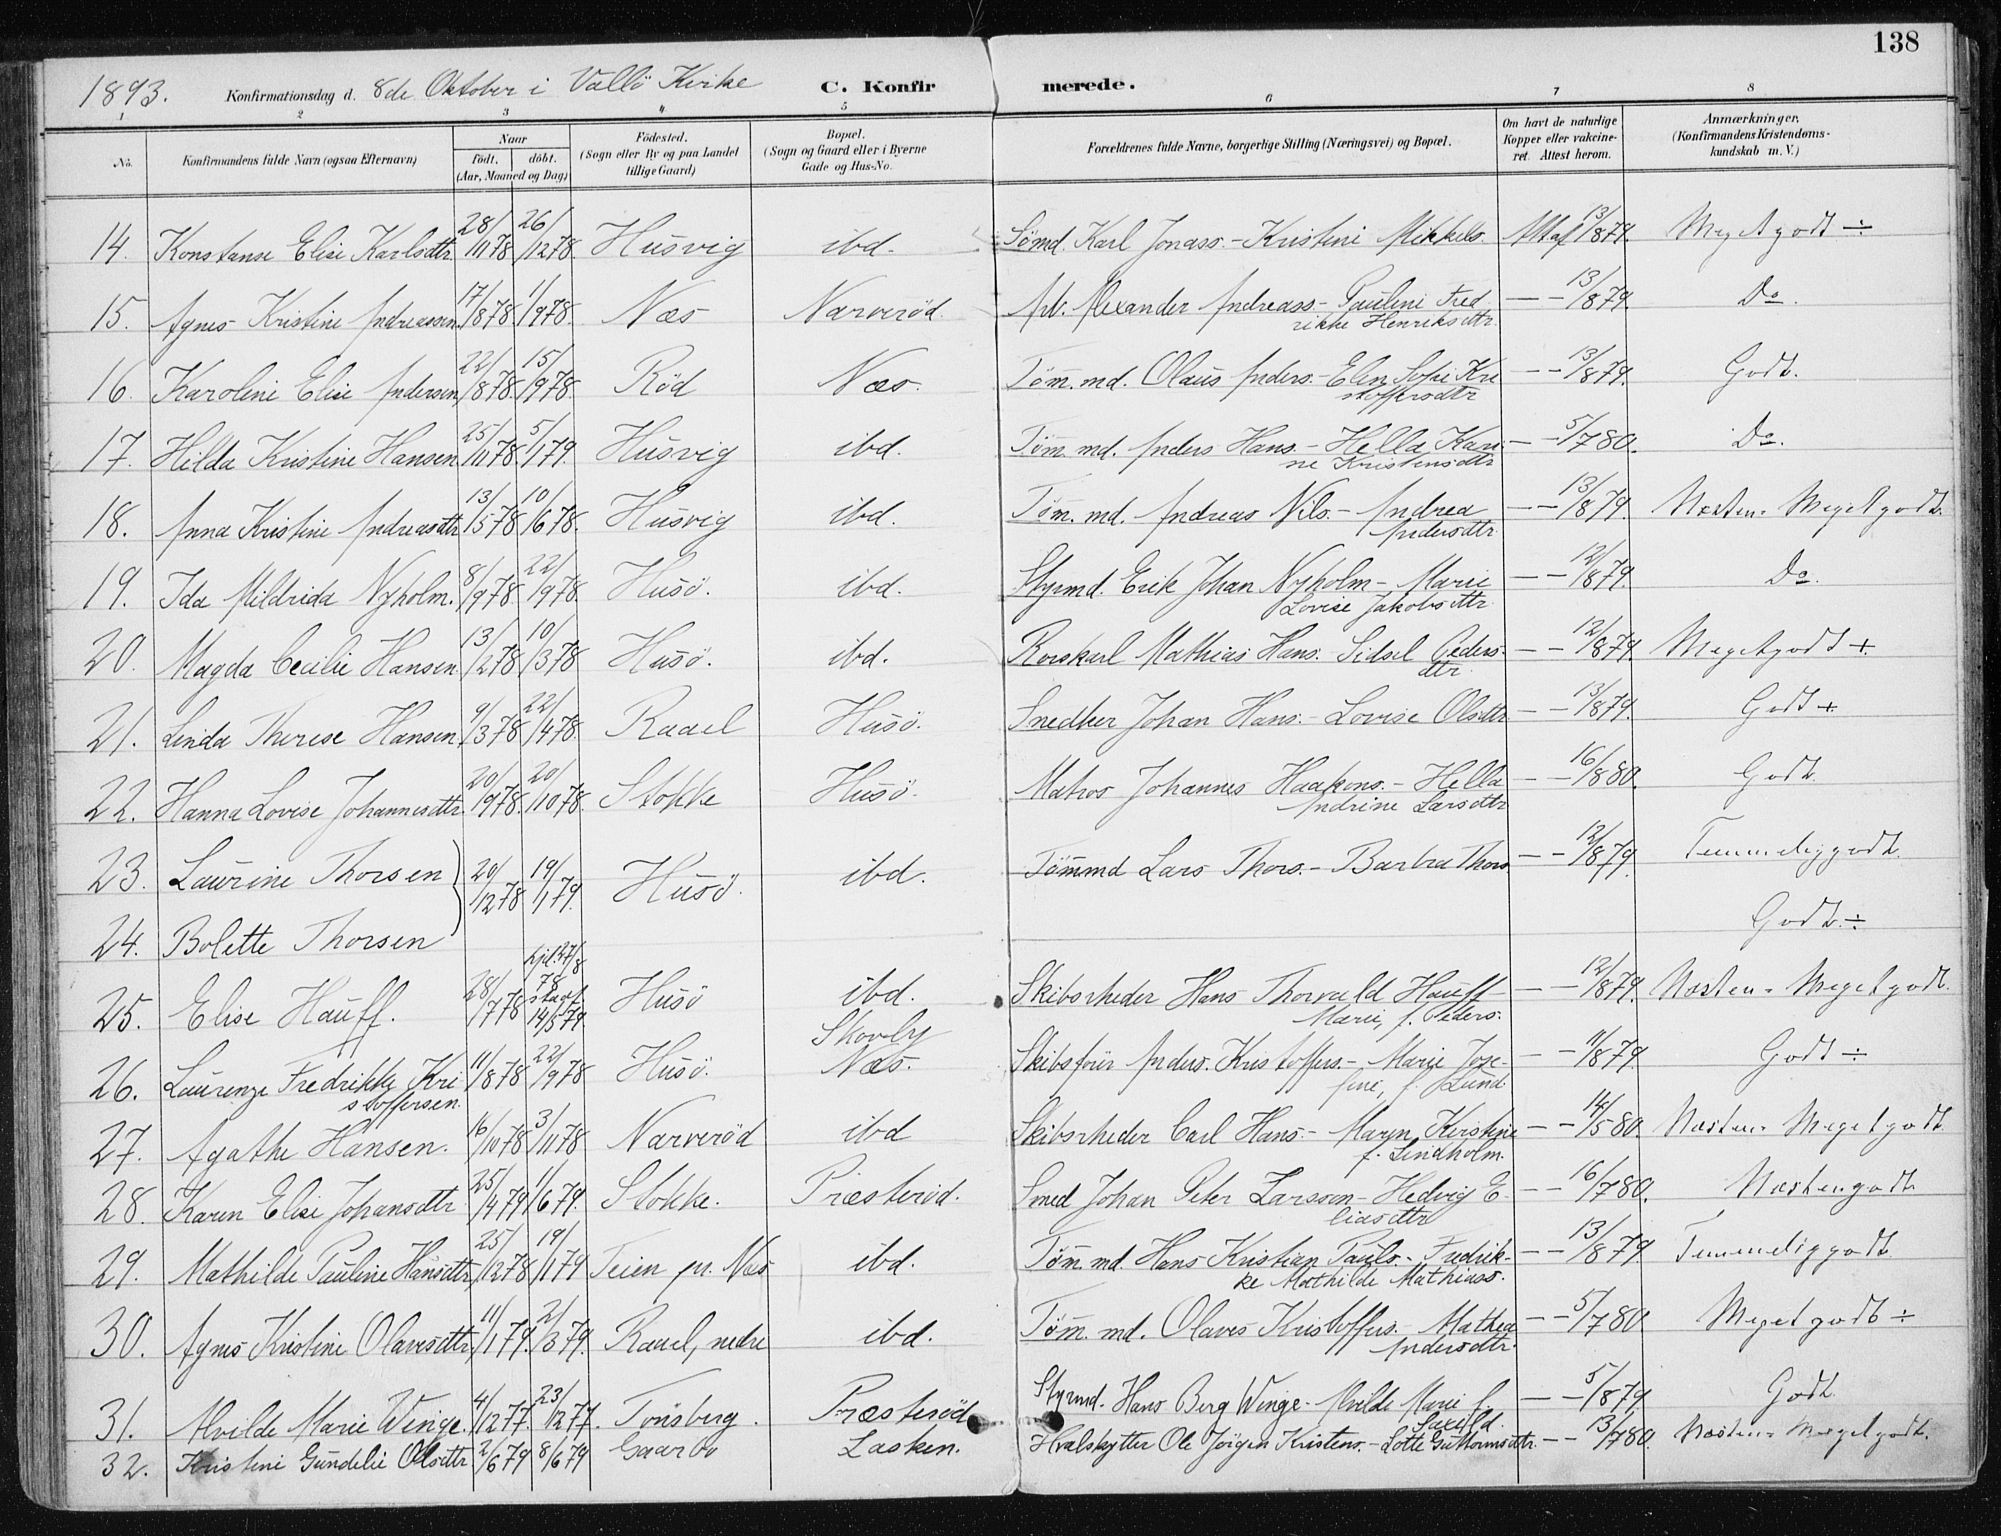 138
1893. Konfirmationsdag d. 8de Oktober i Vallö Kirke C. Konfirmerede.
1 2 3 4 5 6 7 8
No. Konfirmandens fulde Navn (ogsaa Efternavn) Naar födt, döbt. (Aar, Maaned og Dag) Födested. (Sogn eller By og paa Landet tillige Gaard) Bopæl. (Sogn og Gaard eller i Byerne Gade og Hus-No. Forældrenes fulde Navne, borgerlige Stilling (Næringsvei) og Bopæl. Om havt de naturlige Kopper eller vakcineret. Attest herom. Anmærkninger. (Konfirmandens Kristendomskundskab m. V.)
14. Konstanse Elise Karlsdtr. 28/11 78 26/12 78. Husvig ibd. Sömd. Karl Jonass. - Kristine Mikkels. Att af 13/8 79. Megetgodt ÷
15. Agnes Kristine Andreassen 17/8 78. 1/9 78. Næs Narveröd. Arb. Alexander Andreass. - Pauline Fred
rikke Henriksdtr. — - 13/8 79. Do.
16. Karoline Elise Andersen 22/8 78. 15/9 78. Röd Næs. Töm. md. Olaus Anders. - Elen Sofie Kri
stoffersdtr — - 13/8 79. Godt.
17. Hilda Kristine Hansen 25/11 78. 5/1 79. Husvig ibd. Töm. md. Anders Hans. - Hella Kari-
ne Kristensdtr — - 5/7 80. Do.
18. Anna Kristine Andreasdtr 13/5 78. 10/6 78. Husvig ibd. Töm. md. Andreas Nils. - Andrea
Andersdtr — - 13/8 79. Næsten Megetgodt.
19. Ida Mildrida Nyholm. 8/9 78. 22/9 78. Husö. ibd. Styrmd. Erik Johan Nyholm - Marie
Lovise Jakobsdtr. — - 12/8 79. Do.
20. Magda Cecilie Hansen 13/2 78. 10/3 78 Husö. ibd. Rorskarl Mathias Hans. Sidsel Peders-
dtr. — - 12/8 79. Megetgodt +.
21. Linda Therese Hansen. 9/3 78. 22/4 78. Raael Husö. Snedker Johan Hans. - Lovise Olsdtr — - 13/8 79. Godt +
22. Hanna Lovise Johannesdtr. 20/9 78. 20/10 78. Stokke Husö. Matros Johannes Haakons. - Hella
Andrine Larsdtr — - 16/8 80. Godt.
23. Laurine Thorsen 20/12 78 19/1 79. Husö. ibd. Tömmd Lars Thors. - Barbra Thors. — - 12/8 79. Temmeliggodt.
24. Bolette Thorsen Godt. ÷
25. Elise Hauff. 28/7 78 hjd. 27/8 78 stadf 14/5 79. Husö ibd. Skibsrheder Hans Thorvald Hauff -
Marie, f. Peders. — - 12/8 79. Næsten Megetgodt.
26. Laurenze Fredrikke Kri
stoffersen. 11/8 78 22/9 78 Husö. Skovby
Næs. Skibsförer Anders. Kristoffers. - Marie Jose-
fine, f. Lund — - 11/8 79. Godt ÷
27. Agathe Hansen. 16/10 78 3/11 78 Narveröd ibd Skibsrheder Carl Hans. - Maren Kirstine
f. Lindholm. — - 14/5 80. Næsten Megetgodt.
28. Karen Elise Johansdtr. 25/4 79 1/6 79. Stokke. Præsteröd. Smed Johan Peter Larssen - Hedvig E-
liasdtr — - 16/7 80. Næstengodt.
29. Mathilde Pauline Hansdtr, 25/12 78 19/1 79 Teien pr. Næs ibd. Töm. md. Hans Kristian Pauls. - Fredrik-
ke Mathilde Mathiass. — - 13/8 79. Temmeliggodt
30. Agnes Kristine Olavesdtr, 11/1 79. 2/3 79. Raael, nedre ibd. Töm. md. Olaves Kristoffers. - Mathea
Andersdtr. — - 5/7 80. Megetgodt ÷
31. Alvilde Marie Winge. 4/12 77. 23/12 77. Tönsberg. Præsteröd Styrmd. Hans Berg Winge - Alvilde Marie f.
Saxild. — - 5/8 79. Godt
32. Kristine Gundelie Olsdtr 2/6 79 8/6 79 Gaarbo Lasken. Hvalskytter Ole Jörgen Kristens. - Lotte Guttormsdtr. — - 13/7 80. Næsten Megetgodt.